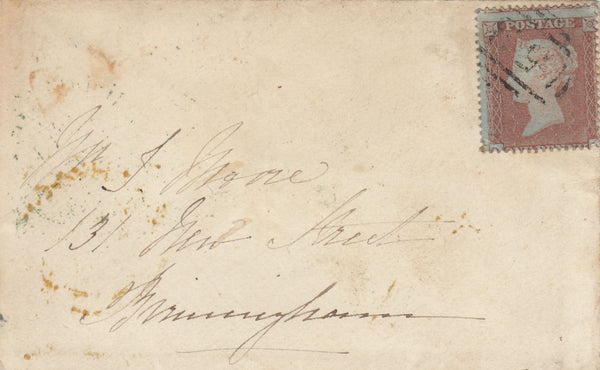 POSTAGE
Mr J Moore
131 New Street
Birmingham